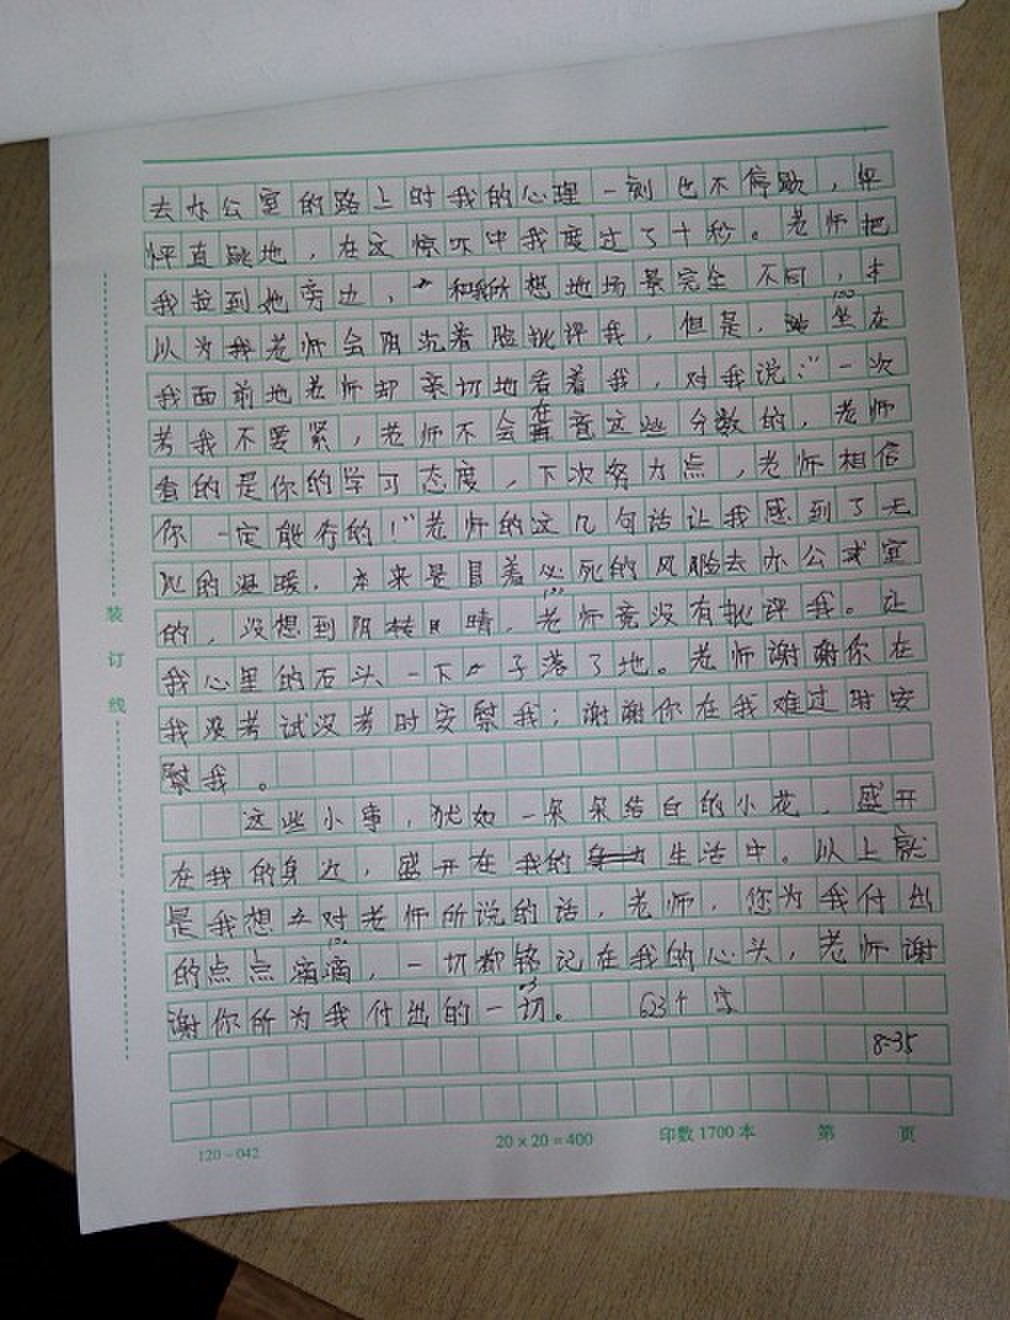 去办公室的路上时我的心理一刻也不停歇，怦
怦直跳地，在这惊吓中我度过了十秒。老师把
我拉到她旁边，和我所想地场景完全不同，本
以为老师会阴沉着脸批评我，但是，坐在
100
我面前地老师却亲切地看着我，对我说：“一次
考我不要紧，老师不会在意这些分数的，老师
看的是你的学习态度，下次努力点，老师相信
你一定能行的！”老师的这几句话让我感到了无
比的温暖．本来是冒着必死的风险去办公室
的，没想到阴转晴，老师竟没有批评我。让
我心里的石头一下子落了地。老师谢谢你在
我没考试没考时安慰我；谢谢你在我难过时安
慰我。
这些小事，犹如一朵朵洁白的小花，盛开
在我的身边，盛开在我的生活中。以上就
是我想对老师所说的话，老师，您为我付出
的点点滴滴，一切都铭记在我的心头，老师谢
谢你所为我付出的一切。 623个字
8:35
装
订
线
120－042
20×20＝400
印数1700本
第 页